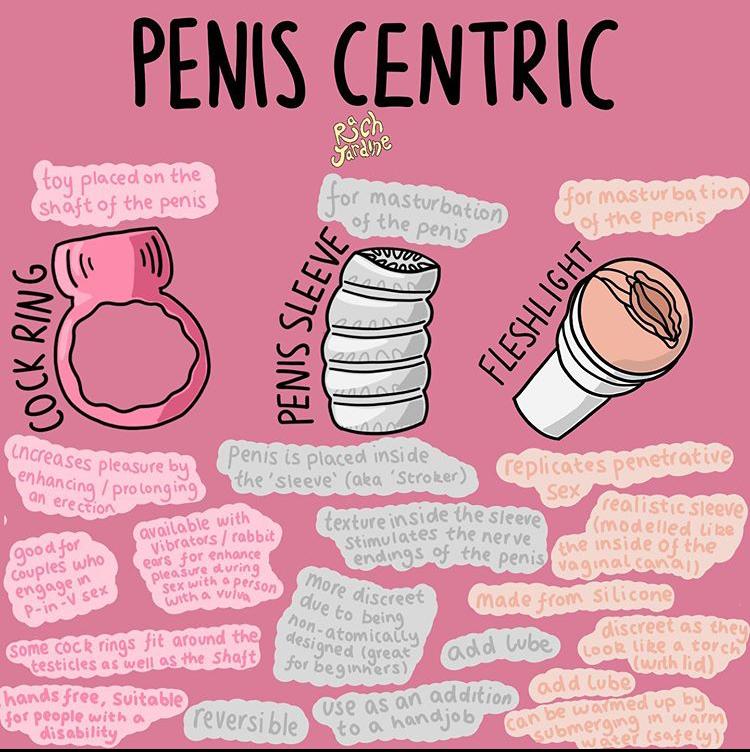 PENIS CENTRIC
Rach
Jardine
toy placed on the
shaft of the penis
COCK RING
increases pleasure by
enhancing / prolonging
an erection
good for
couples who
engage in
p-in-v sex
available with
vibrators / rabbit
ears for enhance
pleasure during
sex with a person
with a vulva
some cock rings fit around the
testicles as well as the shaft
hands free, suitable
for people with a
disability
for masturbation
of the penis
PENIS SLEEVE
Penis is placed inside
the 'sleeve' (aka 'Stroker)
texture inside the sleeve
stimulates the nerve
endings of the penis
more discreet
due to being
non-atomically
designed (great
for beginners)
add lube
reversible
use as an addition
to a handjob
for masturbation
of the penis
FLESHLIGHT
replicates penetrative
sex
realistic sleeve
(modelled like
the inside of the
vaginal canal)
made from silicone
discreet as they
look like a torch
(with lid)
add lube
can be warmed up by
submerging in warm
water (safely)